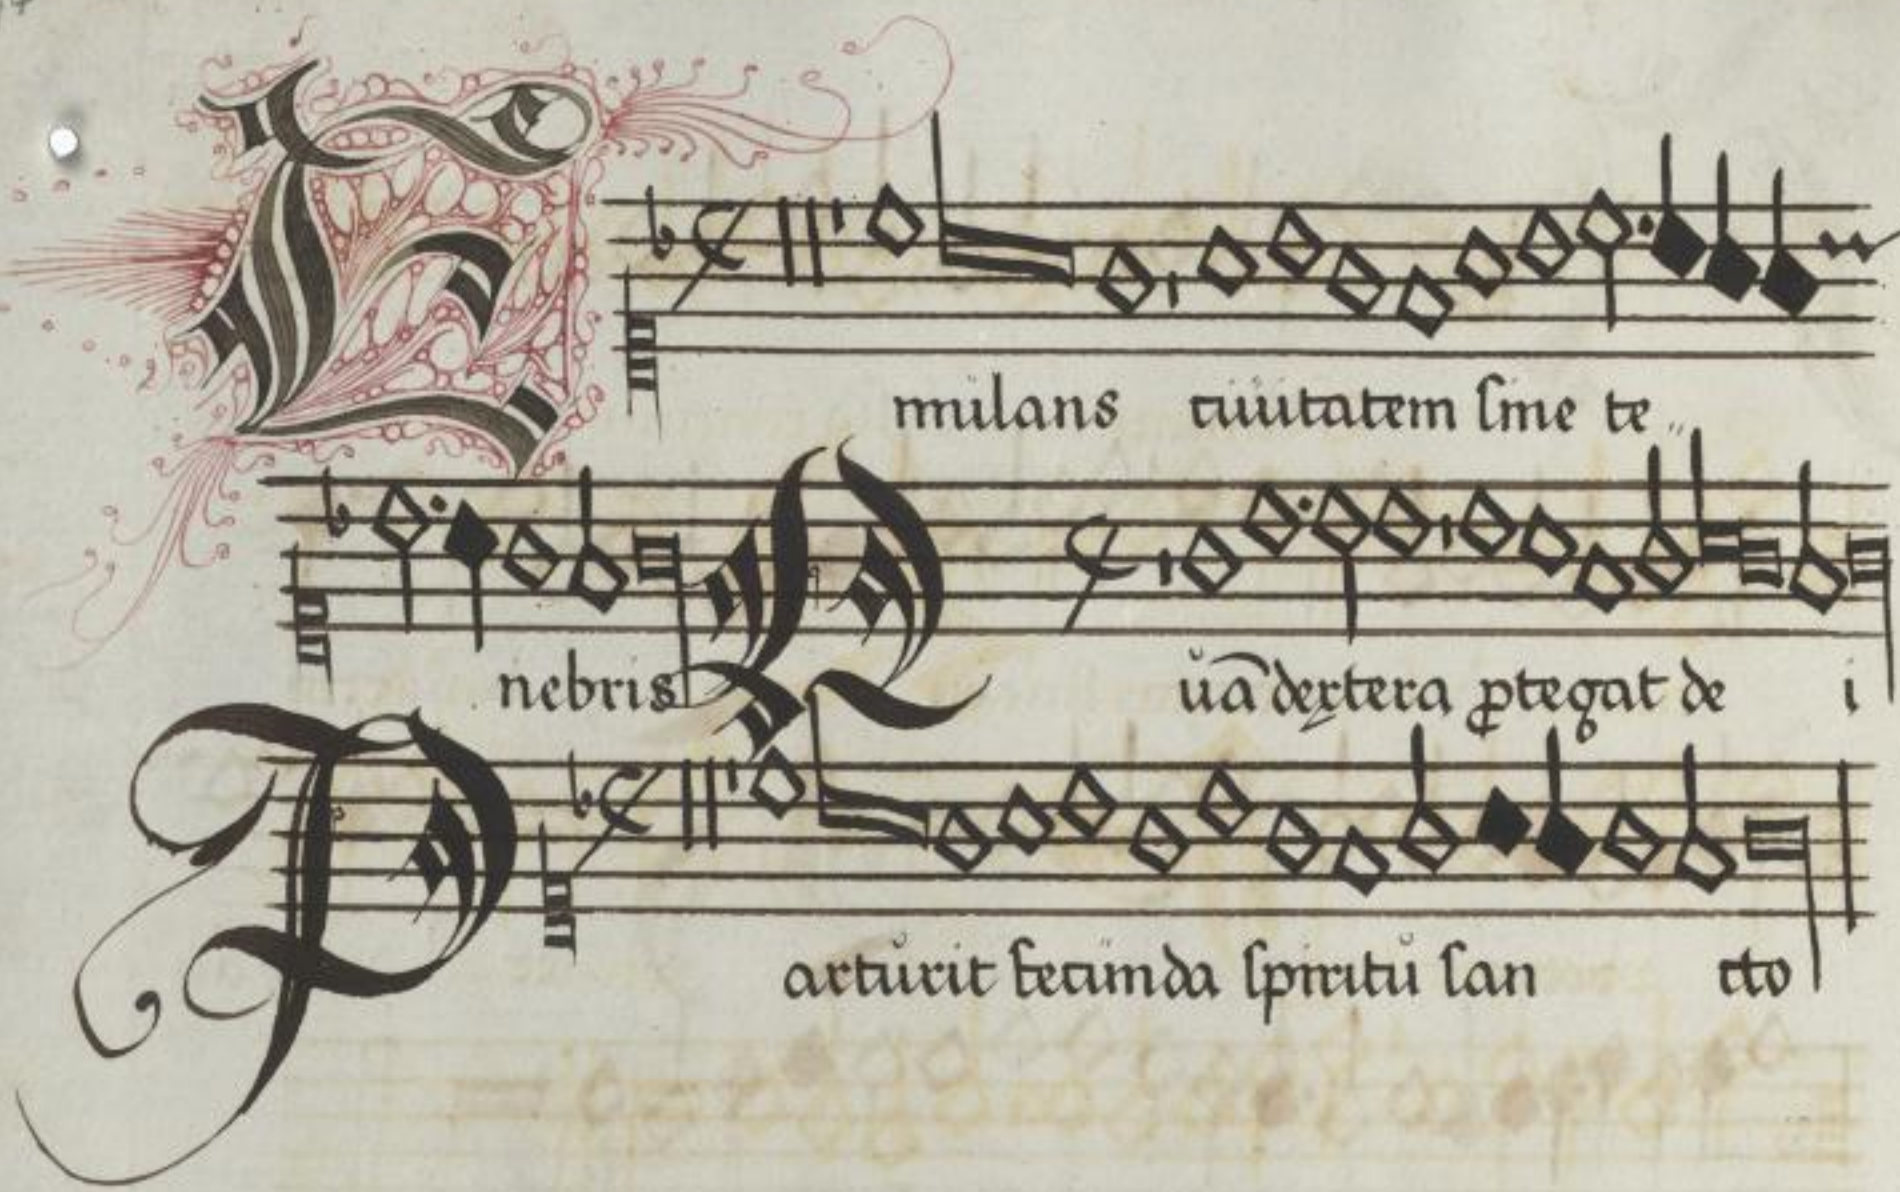 Emulans ciuitatem sine te〃
nebris Quã dextera ꝓtegat de i
Parturit fecunda spiritu san cto